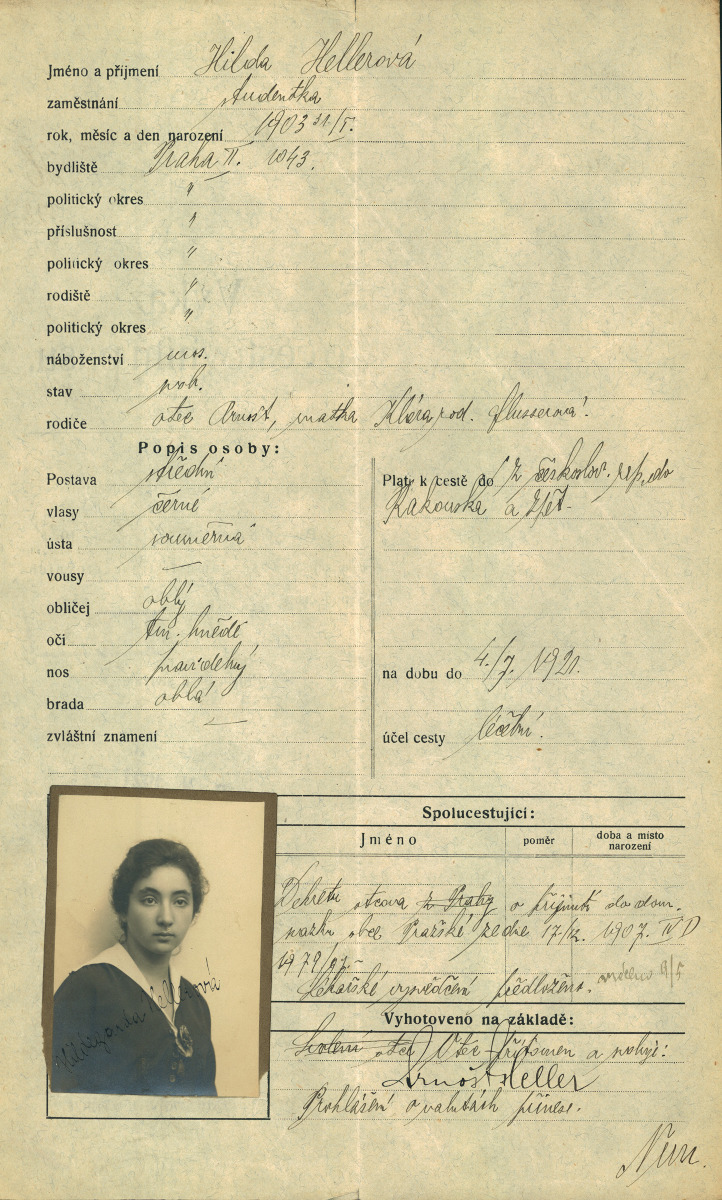 Jméno a příjmení Hilda Hellerová
zaměstnání studentka
rok, měsíc a den narození 1903 21/I.
bydliště Praha II. 1043.
politický okres "
příslušnost "
politický okres "
rodiště "
politický okres "
náboženství mos.
stav svob.
rodiče otec Arnošt, matka Klára rod. Flusserová.
Popis osoby:
Postava střední
vlasy černé
ústa souměrná
vousy —
obličej oblý
oči tm. hnědé
nos pravidelný
brada oblá
zvláštní znamení —
Platí k cestě do z českoslov. rep. do
Rakouska a zpět.
na dobu do 4./7. 1921.
účel cesty léčební.
Spolucestující:
Jméno poměr doba a místo narození
Dekretu otcova z Prahy o přijmutí do dom.
svazku obce Pražské ze dne 17/12. 1907. IV D
1979/07.-
Lékařské vysvědčení předloženo.
Hildegarda Hellerová
Vyhotoveno na základě:
otec Otec přítomen a svoluje:
Arnošt Heller
Prohlášení o valutách přinese.